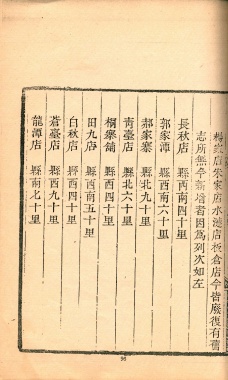 楊家店朱家店水漣店板倉店今皆廢復有舊
志所無今新增者因爲列次如左
長秋店　縣西南四十里
郭家潭　縣西南六十里
郝家寨　縣北九十里
靑臺店　縣北六十里
桐寨舖　縣西四十里
田九店　縣西南五十里
白秋店　縣西四十里
蒼臺店　縣西南九十里
龍潭店　縣南七十里